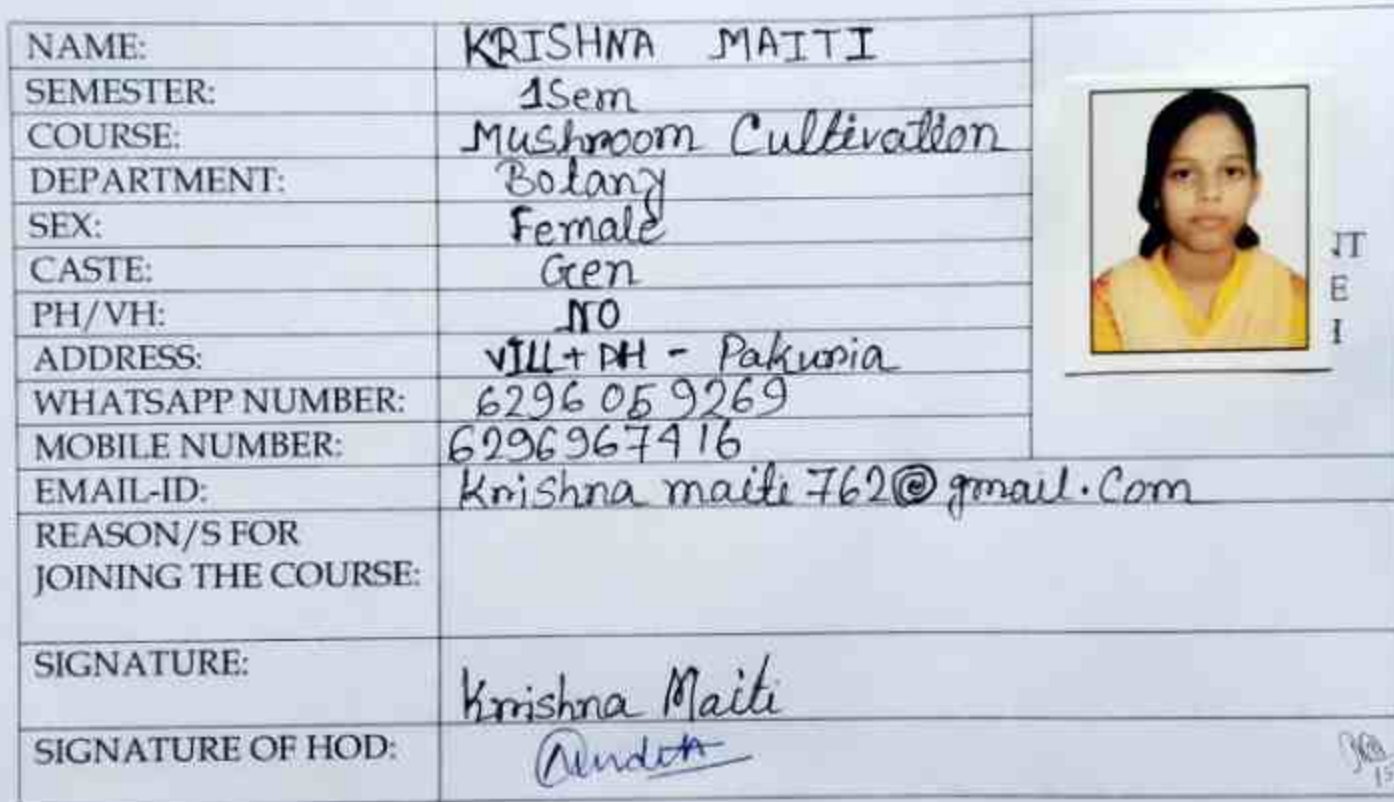 NAME: KRISHNA MAITI
SEMESTER: 1Sem
COURSE: Mushroom Cultivation
DEPARTMENT: Botany
SEX: Female
CASTE: Gen
PH/VH: NO
ADDRESS: VILL+ PH - Pakuria
WHATSAPP NUMBER: 6296 059269
MOBILE NUMBER: 6296967416
EMAIL-ID: Krishna maiti 762@gmail.Com
REASON/S FOR
JOINING THE COURSE:
SIGNATURE: Krishna Maiti
SIGNATURE OF HOD: